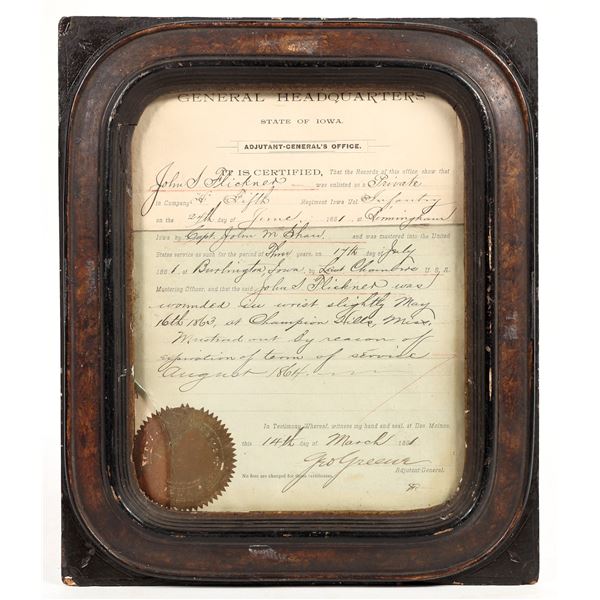 GENERAL HEADQUARTERS
STATE OF IOWA.
ADJUTANT-GENERAL'S OFFICE.
IT IS CERTIFIED, That the Records of this office show that
John S Flickner was enlisted as a Private
in Company Fifth Regiment Iowa Vol. Infantry
on the 27th day of June 1861 Birmingham
Iowa by Capt. John M Shaw and was mustered into the United
States service as such for the period of Three years, on 17th day of July
1861 Burlington Iowa by Lieut Chambers U. S. A.
Mustering Officer, and that the said John S Flickner was
wounded in wrist slightly May
16th 1863, at Champion Hills, Miss,
Mustered out by reason of
expiration of term of service
August 1864.
In Testimony Whereof, witness my hand and seal, at Des Moines,
this 14th day of March
Geo Greene
Adjutant-General.
No fees are charged for these certificates.